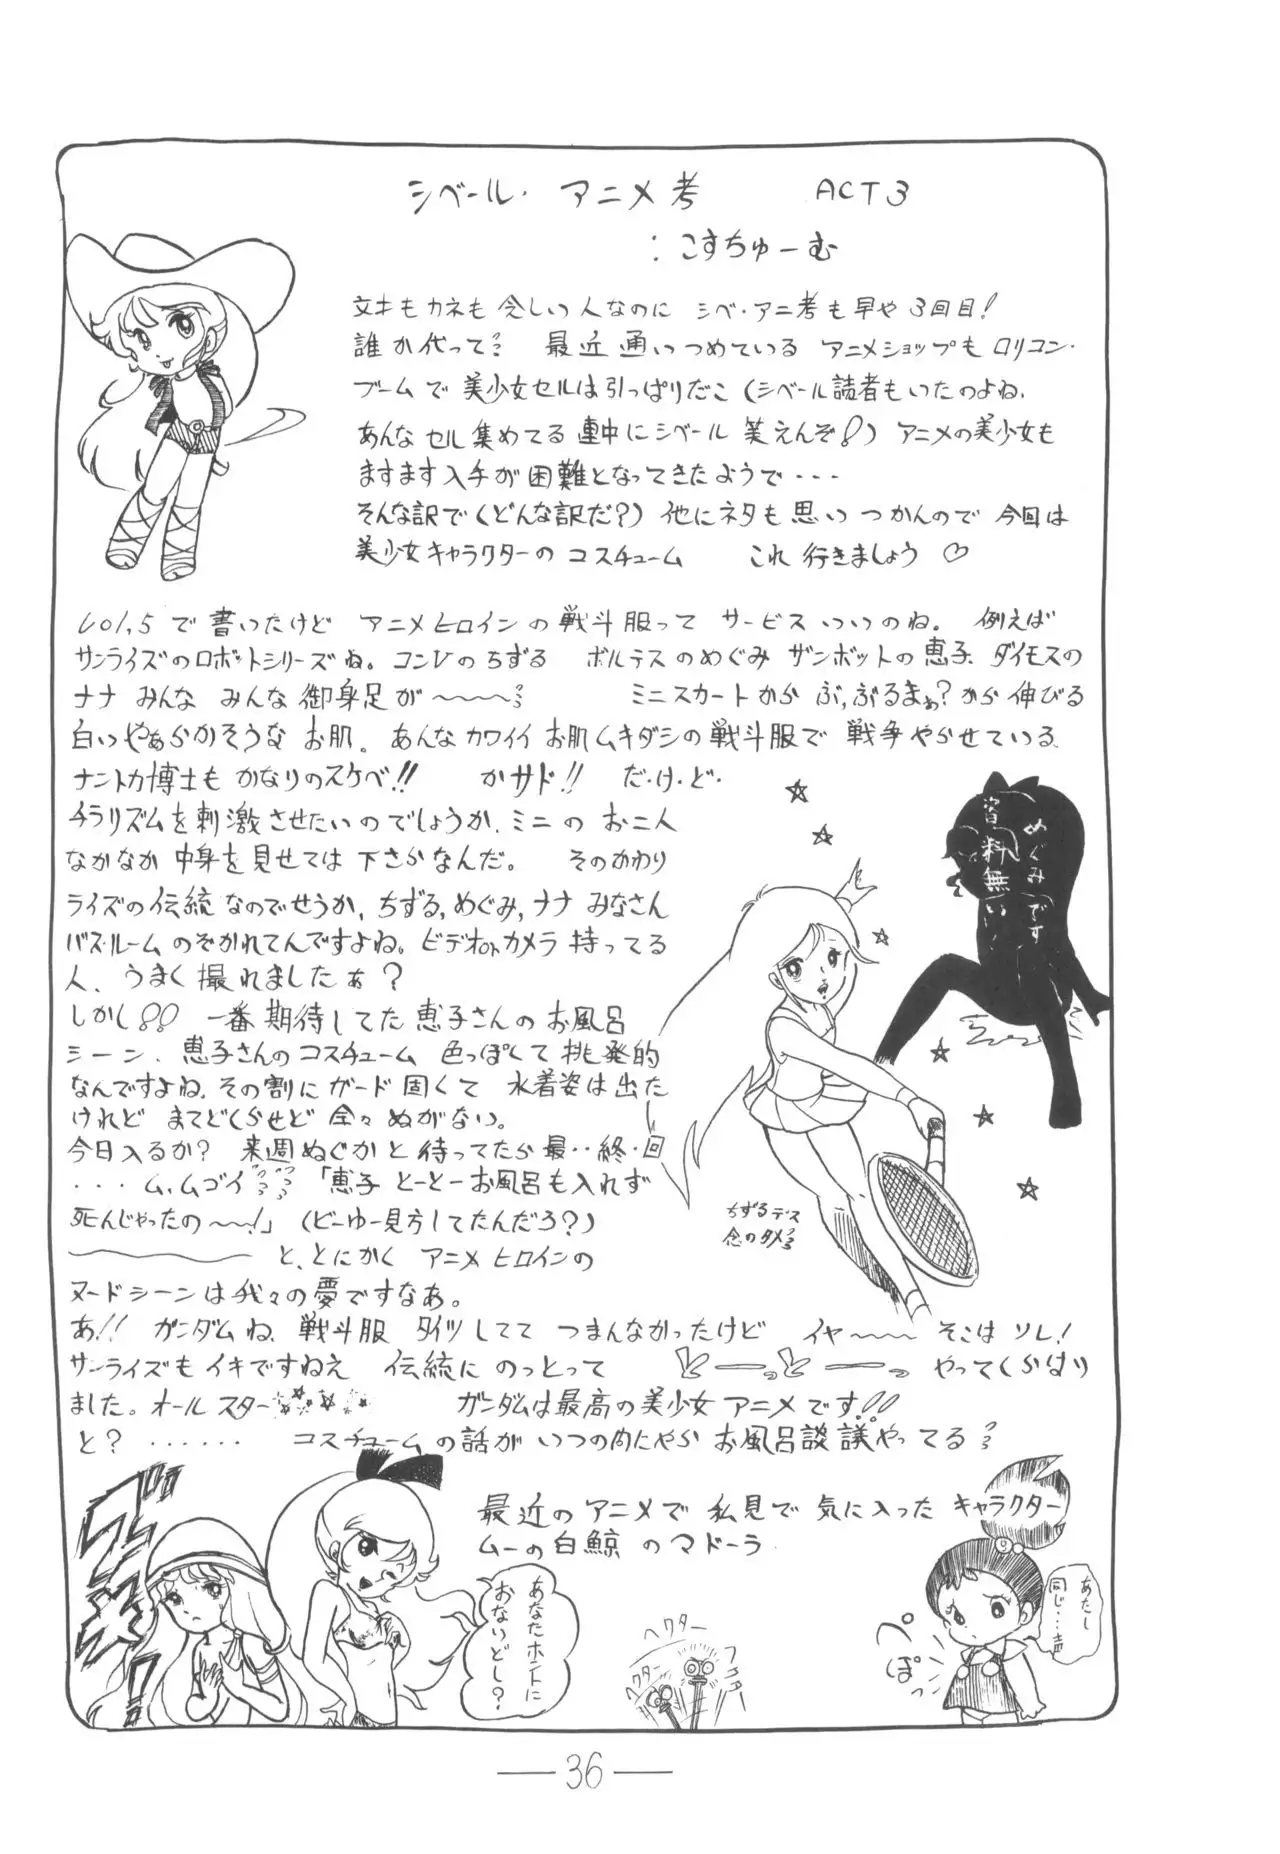 シベール・アニメ考 ACT3
：こすちゅーむ
文才もカネも乏しい人なのに シベ・アニ考も早や3回目！
誰か代って 最近通いつめている アニメショップもロリコン・
ブームで美少女セルは引っぱりだこ（シベール読者もいたのよね．
あんなセル集めてる連中にシベール笑えんぞ！）アニメの美少女も
ますます入手が困難となってきたようで・・・
そんな訳で（どんな訳だ？）他にネタも思いつかんので今回は
美少女キャラクターのコスチューム これ行きましょう♡
Vol,5で書いたけど アニメヒロインの戦斗服って サービスいいのね。例えば
サンライズのロボットシリーズね。コンVのちずる ボルテスのめぐみ ザンボットの恵子 ダイモスの
ナナ みんな みんな 御身足が〜〜〜 ミニスカートから ぶ,ぶるまぁ？から伸びる
白いやぁらかそうな お肌。あんなカワイイお肌ムキダシの戦斗服で 戦争やらせている
ナントカ博士も かなりのスケベ!! かサド!! だ・け・ど・
チラリズムを刺激させたいのでしょうか、ミニの お二人
なかなか 中身を見せては 下さらなんだ。 そのかわり
ライズの伝統なのでせうか,ちずる,めぐみ,ナナ みなさん
バス・ルームのぞかれてんですよね。ビデオorカメラ持ってる
人、うまく撮れましたぁ？
しかし!! 一番期待してた恵子さんのお風呂
シーン、恵子さんのコスチューム 色っぽくて 挑発的
なんですよね。その割にガード固くて 水着姿は出た
けれど まてどくらせど 全々ぬがない。
今日入るか？ 来週ぬぐかと待ってたら最・・終・回
・・・ム,ムゴイ 「恵子 とーとーお風呂も入れず
死んじゃったの〜〜！」（どーゆー見方してたんだろ？）
と、とにかく アニメヒロインの
ヌードシーンは我々の夢ですなぁ。
あ!! ガンダムね、戦斗服 タイツしてて つまんなかったけど イヤ〜〜〜 そこはソレ！
サンライズもイキですねえ 伝統にのっとって どーっとーっ やってくらはり
ました。オールスター☆☆☆☆ ガンダムは最高の美少女アニメです!!
と？ ・・・・・・ コスチュームの話がいつの間にやらお風呂談議やってる
めぐみです
資料無い！
ちずるデス
念のタメ
最近のアニメで 私見で 気に入ったキャラクター
ムーの白鯨のマドーラ
あなたホントに
おないどし？
ヘクター
ヘクター
ぺ
ぽっ
あたし
同じ…
— 36 —